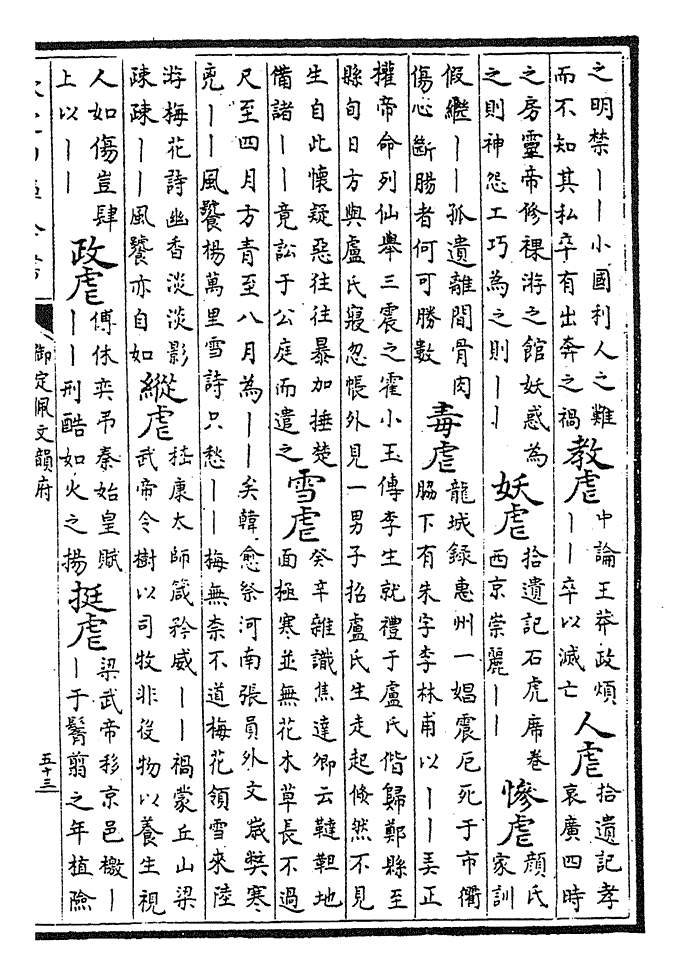 之明禁丨丨小國利人之難
而不知其私卒有出奔之禍
教虐
中論王莽政煩
丨丨卒以滅亡
人虐
拾遺記孝
哀廣四時
之房靈帝修裸游之館妖惑為
之則神怨工巧為之則丨丨
妖虐
拾遺記石虎席卷
西京崇麗丨丨
慘虐
顔氏
家訓
假繼丨丨孤遺離間骨肉
傷心斷腸者何可勝數
毒虐
龍城録惠州一娼震厄死于市衢
脇下有朱字李林甫以丨丨弄正
擢帝命列仙舉三震之霍小玉傳李生就禮于盧氏偕歸鄭縣至
縣旬日方與盧氏寢忽帳外見一男子招盧氏生走起倐然不見
生自此懷疑惡往往暴加捶楚
備諸丨丨竟訟于公庭而遣之
雪虐
癸辛雜識焦達卿云韃靼地
面極寒並無花木草長不過
尺至四月方青至八月為丨丨矣韓愈祭河南張員外文嵗弊寒
兇丨丨風饕楊萬里雪詩只愁丨丨梅無奈不道梅花領雪來陸
游梅花詩幽香淡淡影
疎疎丨丨風饕亦自如
縱虐
嵇康太師箴矜威丨丨禍蒙丘山梁
武帝令樹以司牧非役物以養生視
人如傷豈肆
上以丨丨
政虐
傅休奕弔秦始皇賦
丨丨刑酷如火之揚
挺虐
梁武帝移京邑檄丨
丨于髫翦之年植險
御定佩文韻府
五十三